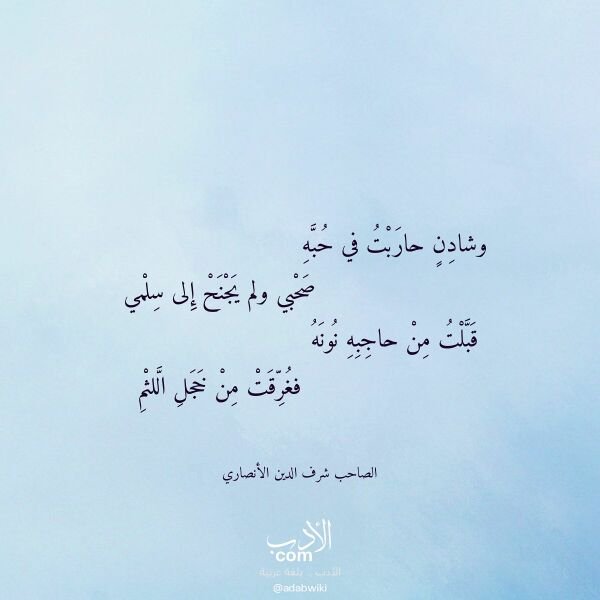 وشادِنٍ حارَبْتُ في حُبَّهِ
صَحْبي ولم يَجْنَحْ إِلى سِلْمي
قَبَّلْتُ مِنْ حاجِبِهِ نُونَهُ
فغُرِّقَتْ مِنْ خَجَلِ الَّلثْمِ
الصاحب شرف الدين الأنصاري
الأدب
com
الأدب .. بلغة عربية
@adabwiki